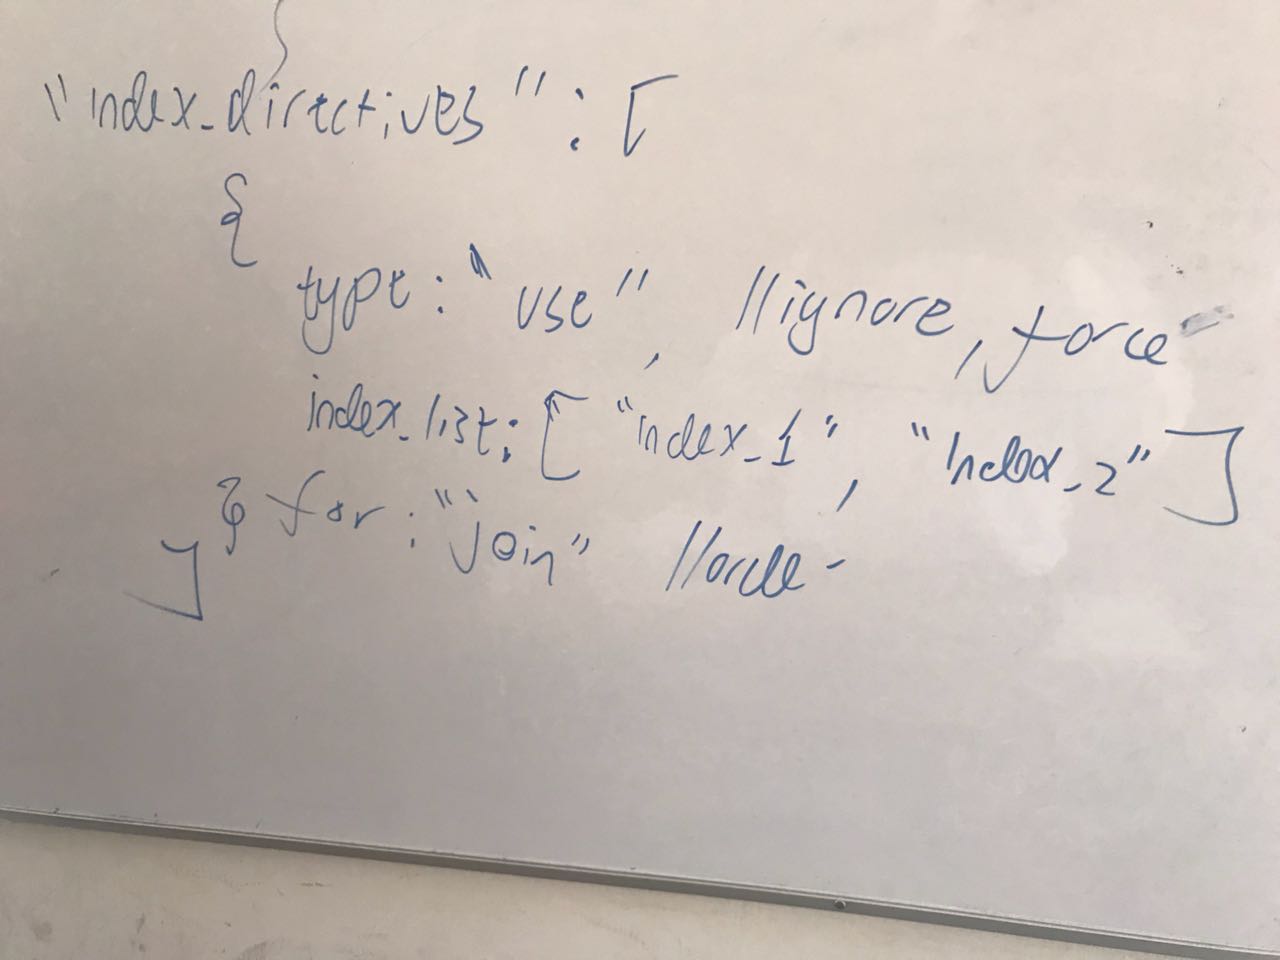 "index_directives" : [
{
type : "use", //ignore, force
index_list : [ "index_1", "index_2" ]
} for : "join" //
]